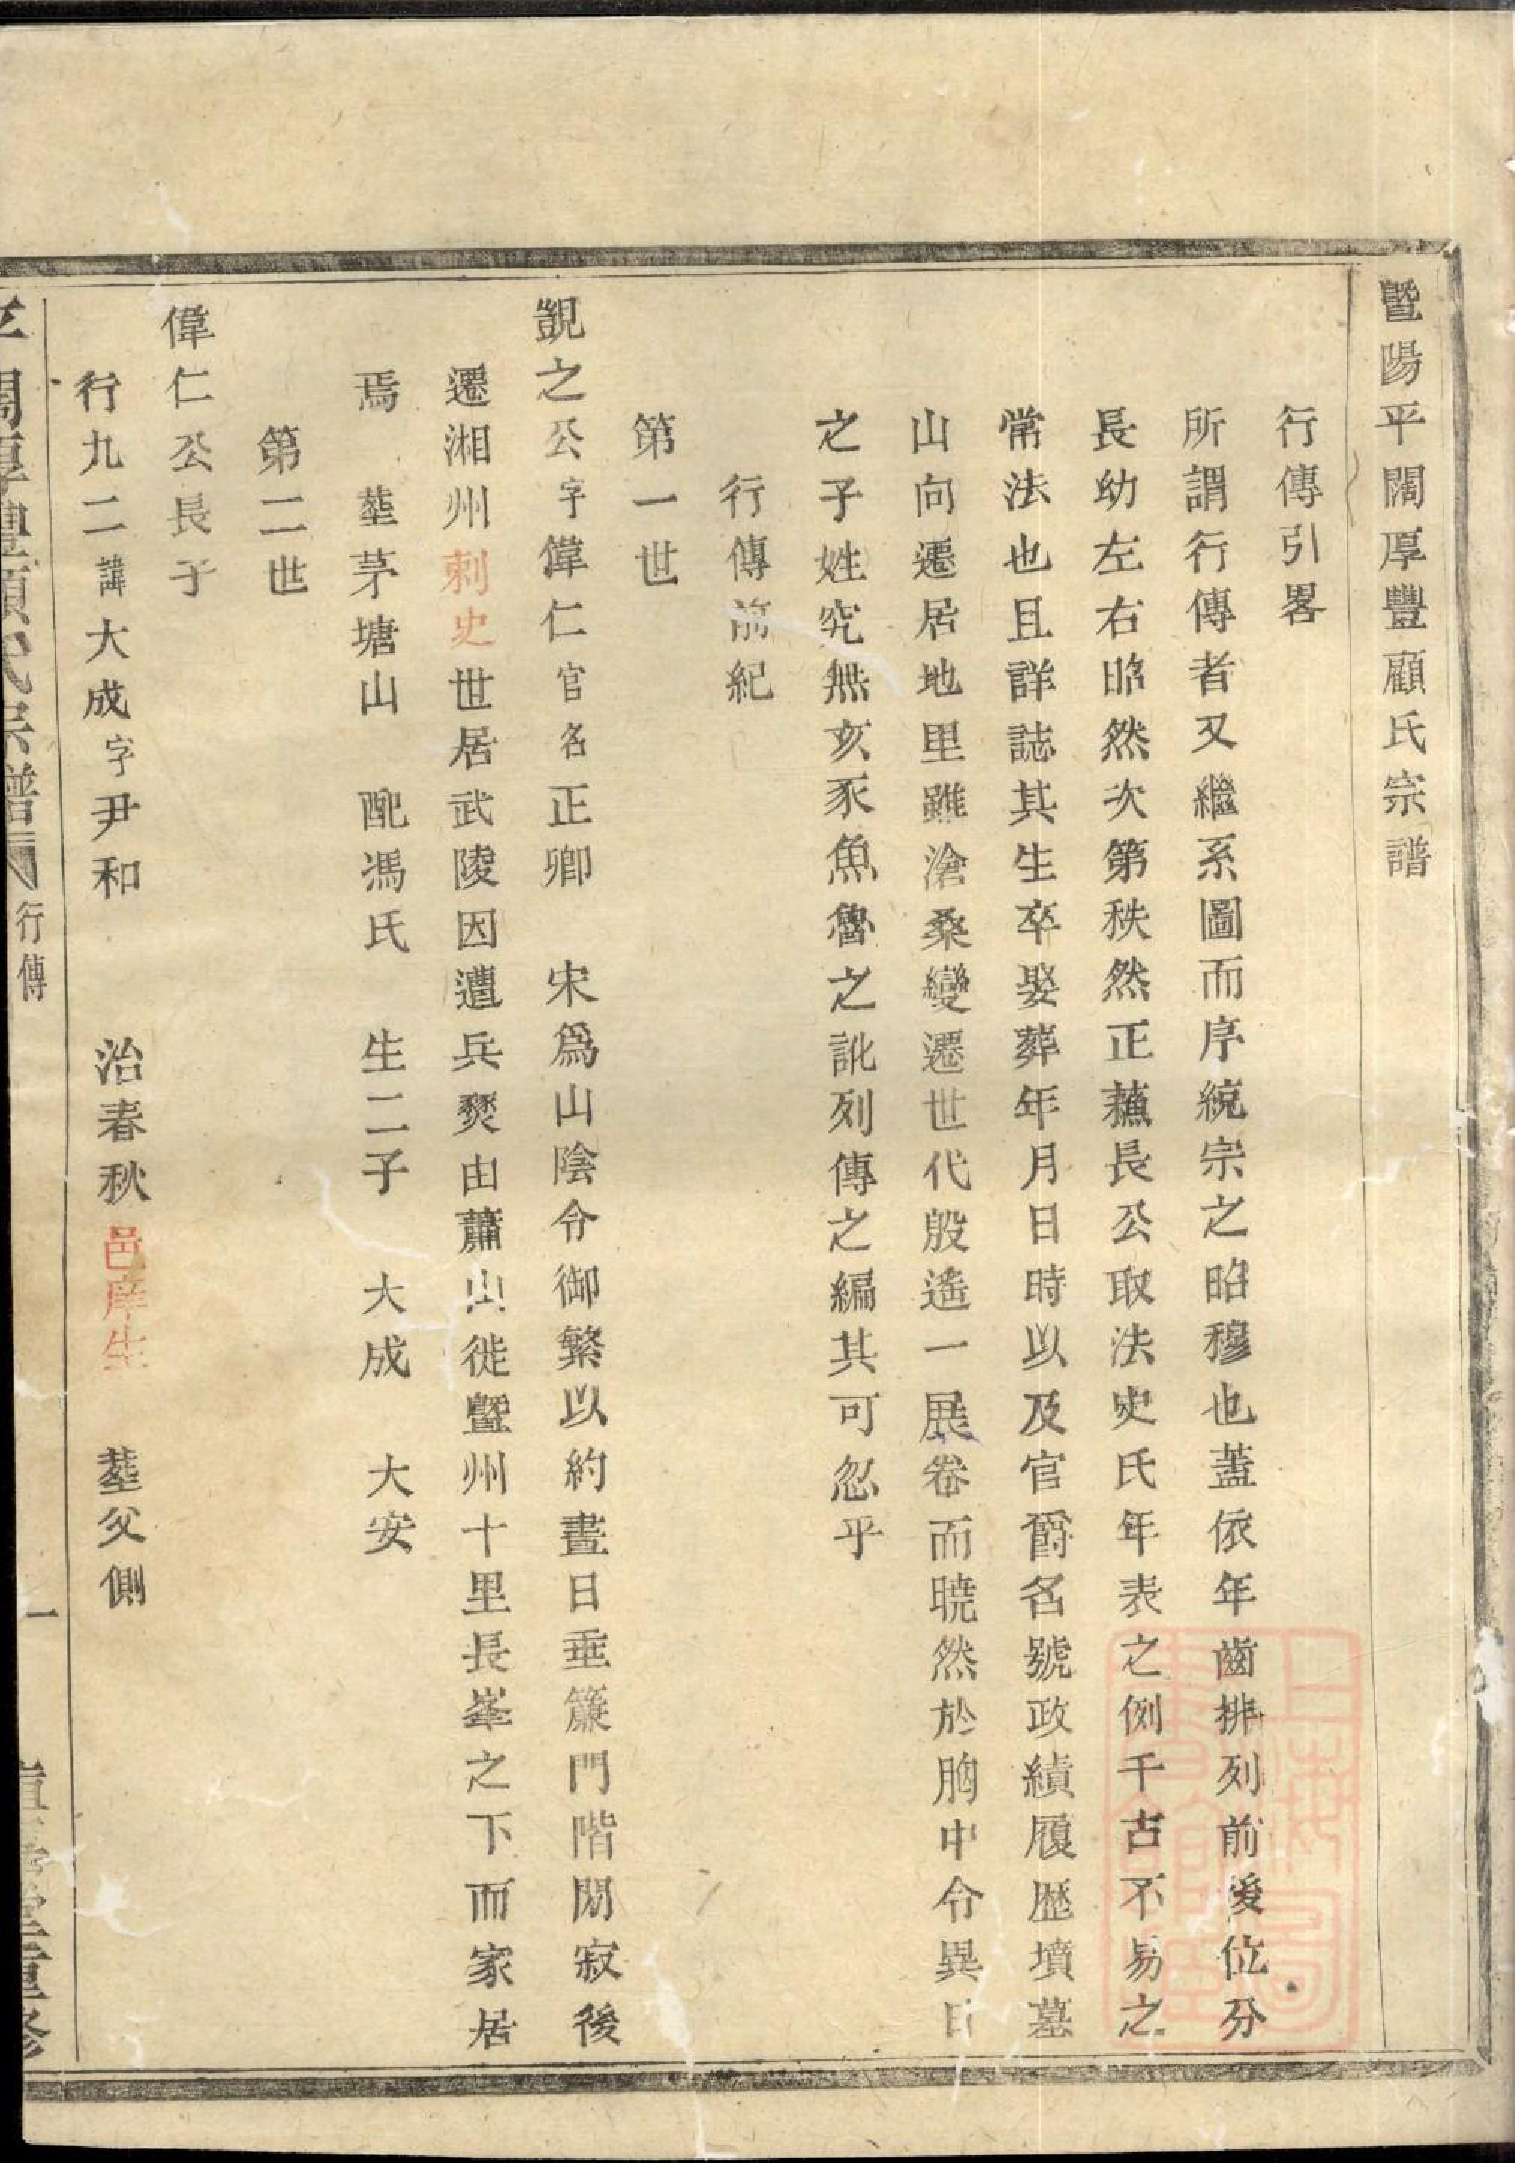 暨陽平闊厚豐顧氏宗譜
行傳引畧
所謂行傳者又繼系圖而序統宗之昭穆也蓋依年齒排列前後位分
長幼左右昭然次第秩然正蘓長公取法史氏年表之例千古不易之
常法也且詳誌其生卒娶葬年月日時以及官爵名號政績履歷墳墓
山向遷居地里雖滄桑變遷世代殷遙一展卷而曉然於胸中令異日
之子姓究無亥豕魚魯之訛列傳之編其可忽乎
行傳前紀
第一世
覬之公字偉仁官名正卿 宋爲山陰令御繁以約晝日垂簾門階閒寂後
遷湘州刺史世居武陵因遭兵燹由蕭山徙暨州十里長峯之下而家居
焉 塟茅塘山 配馮氏 生二子 大成 大安
第二世
偉仁公長子
行九二諱大成字尹和 治春秋邑庠生 塟父側
平闊厚豐顧氏宗譜 行傳 一 堂重修
上海圖書館藏